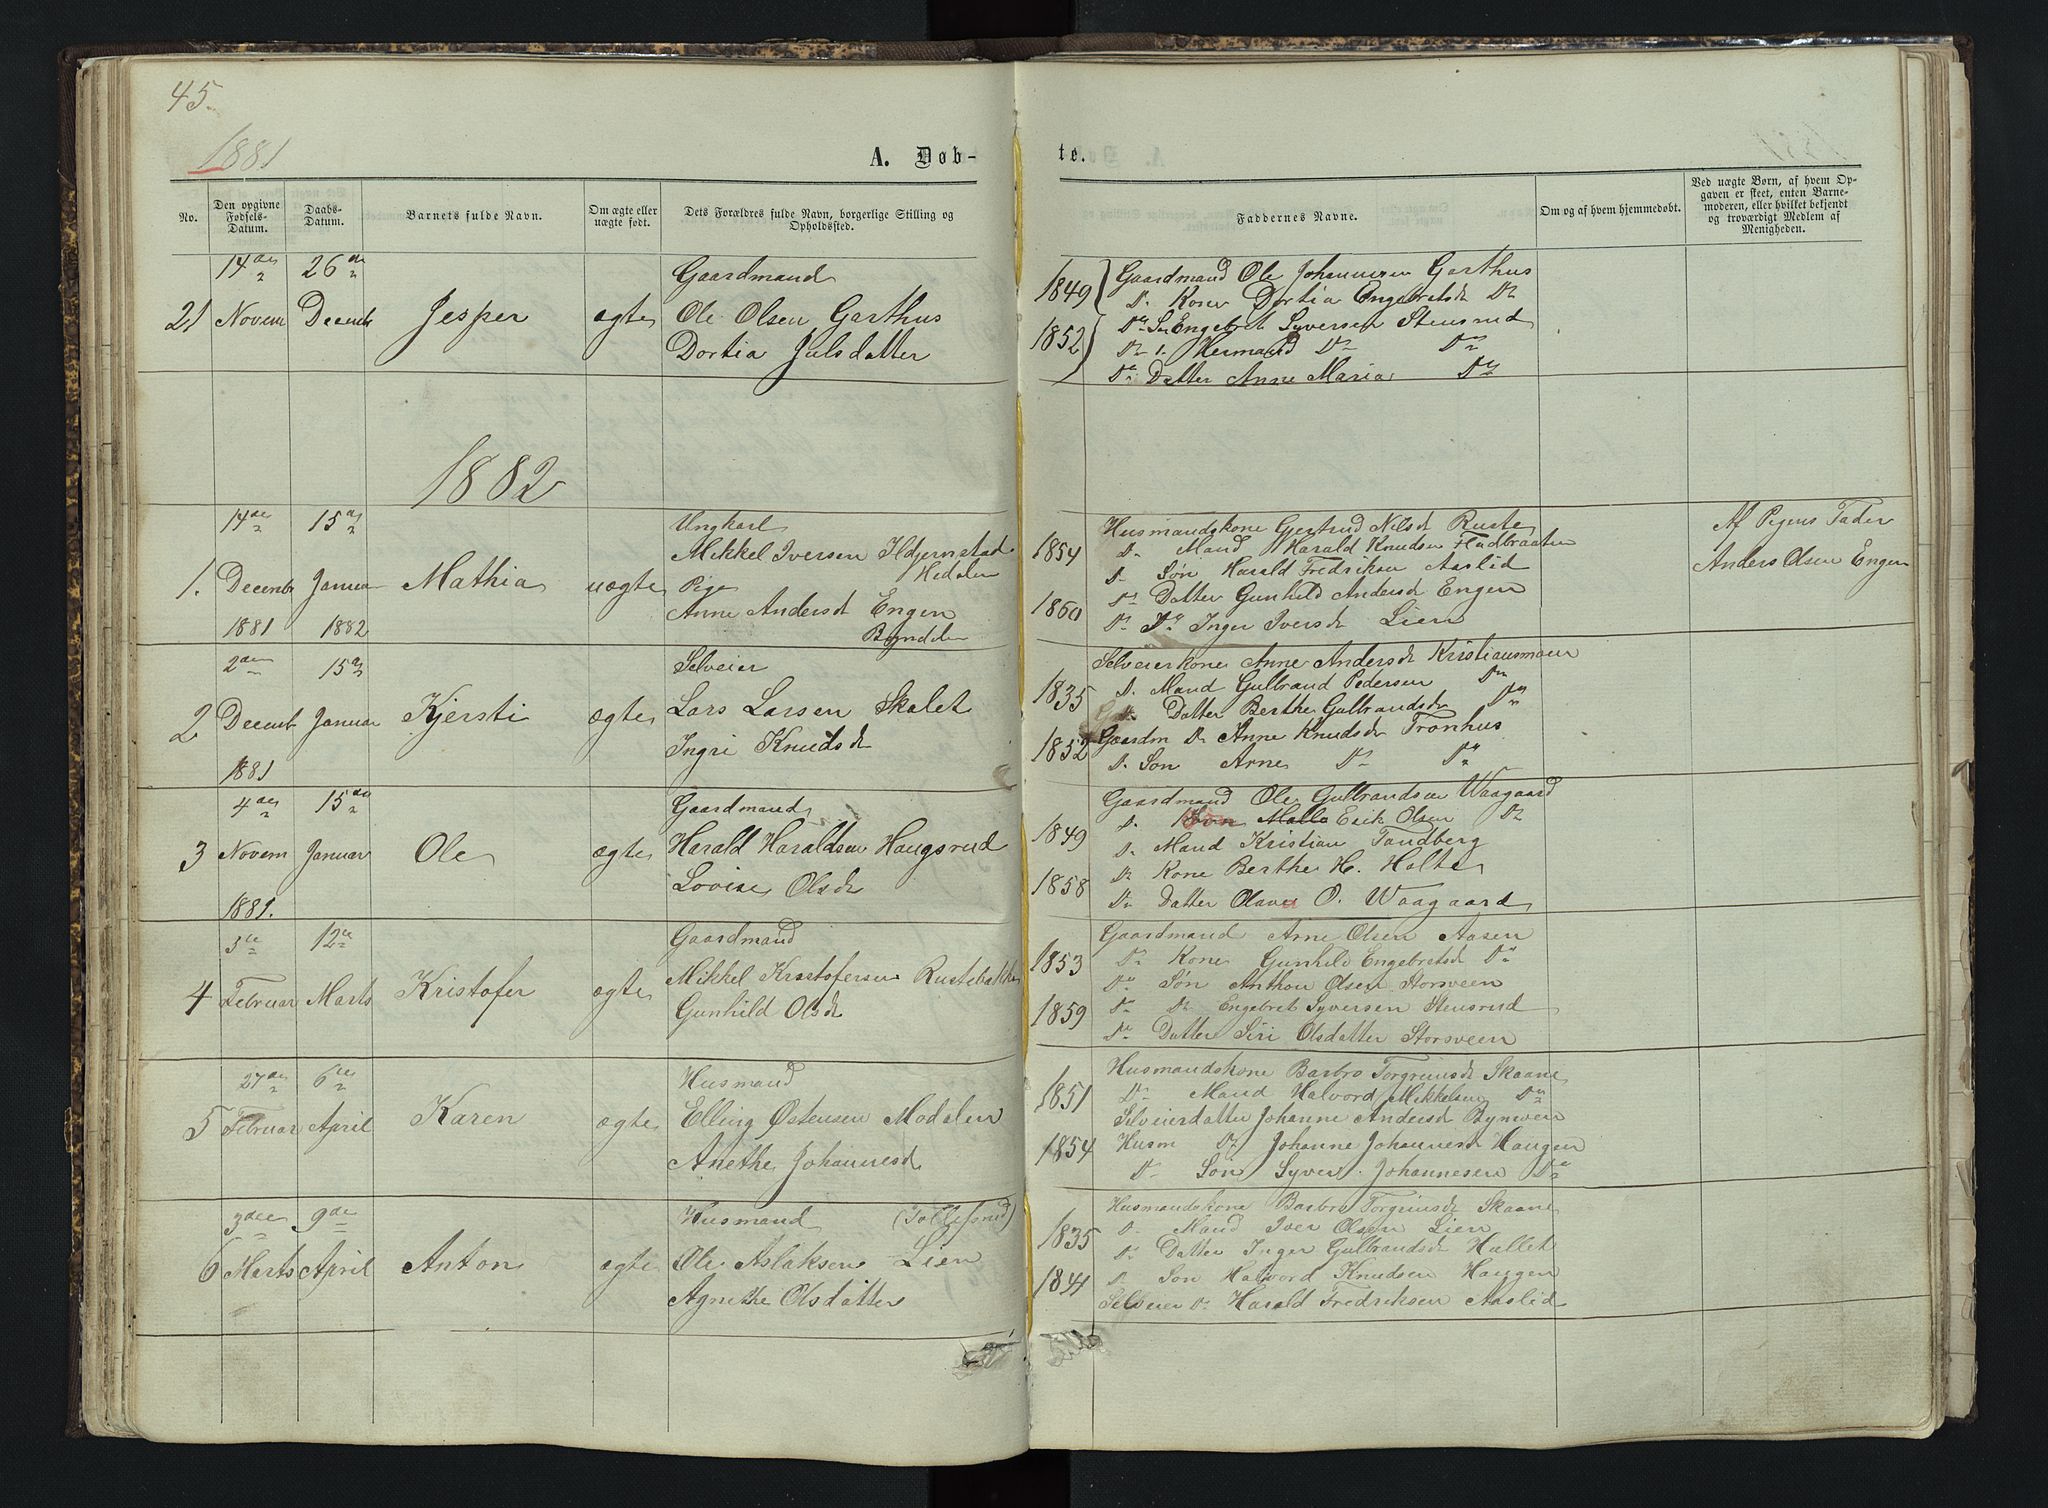 45.
1881
A. Døb-
te.
No.
Den opgivne Fødsels-Datum.
Daabs-Datum.
Barnets fulde Navn.
Om ægte eller uægte født.
Dets Forældres fulde Navn, borgerlige Stilling og Opholdssted.
Faddernes Navne.
Om og af hvem hjemmedøbt.
Ved uægte Børn, af hvem Opgaven er skeet, enten Barnemoderen, eller hvilket bekjendt og troværdigt Medlem af Menigheden.
21
14de Novem
26de Decemb
Jesper
ægte
Gaardmand
Ole Olsen Garthus
Dortia Julsdatter
1849
1852
Gaardmand Ole Johannesen Garthus
Do Kone Dortia Engebretsd Do
Do Sø Engebret Syversen Stensrud
Do " Hermand Do Do
Do Datter Anne Maria Do
1882
1.
14de Decemb 1881
15de Januar 1882
Mathia
uægte
Ungkarl
Mikkel Iversen Hjernstad
Hedalen
Pige
Anne Andersd Engen
1854
1860
Husmandskone Gjertrud Nilsd Ruste
Do Mand Harald Knudsen Fladbraaten
Do Søn Harald Fredriksen Aaslid
Do Datter Gunhild Andersd Engen
Do Do Inger Iversd Lien
Af Pigens Fader
Anders Olsen Engen
2
2den Decemb 1881
15de Januar
Kjersti
ægte
Selveier
Lars Larsen Skalet
Ingri Knudsd
1835
1852
Selveierkone Anne Andersd Kristiansmoen
Do Mand Gulbrand Pedersen Do
Do Datter Berthe Gulbrandsd Do
Gaardm Do Anne Knudsd Tronhus
Do Søn Arne Do Do
3
4de Novem 1881.
15de Januar
Ole
ægte
Gaardmand
Harald Haraldsen Haugsrud
Lovise Olsd
1849
1858
Gaardmand Ole Gulbrandsen Waagaard
Do Søn Erik Olsen Do
Do Mand Kristian Tandberg
Do Kone Berthe H. Holte
Do Datter Olava O. Waagaard
4
3die Februar
12te Marts
Kristofer
ægte
Gaardmand
Mikkel Kristofersen Rustebakke
Gunhild Olsd
1853
1859
Gaardmand Arne Olsen Aasen
Do Kone Gunhild Engebretsd Do
Do Søn Anthon Olsen Storsveen
Do Do Engebret Syversen Stensrud
Do Datter Siri Olsdatter Storsveen
5
27de Februar
6te April
Karen
ægte
Husmand
Elling Østensen Modalen
Anethe Johannesd
1851
1854
Husmandskone Barbro Torgrimsd Skaane
Do Mand Halvord Mikkelsen Do
Selveierdatter Johanne Andersd Bynveien
Husm Do Johanne Johannesd Haugen
Do Søn Syver Johannesen Do
6
3die Marts
9de April
Anton
ægte
Husmand (Tollefsrud)
Ole Aslaksen Lien
Agnethe Olsdatter
1835
1841
Husmandskone Barbro Torgrimsd Skaane
Do Mand Iver Olsen Lien
Do Datter Inger Gulbrandsd Hallet
Do Søn Halvord Knudsen Haugen
Selveier Do Harald Fredriksen Aaslid